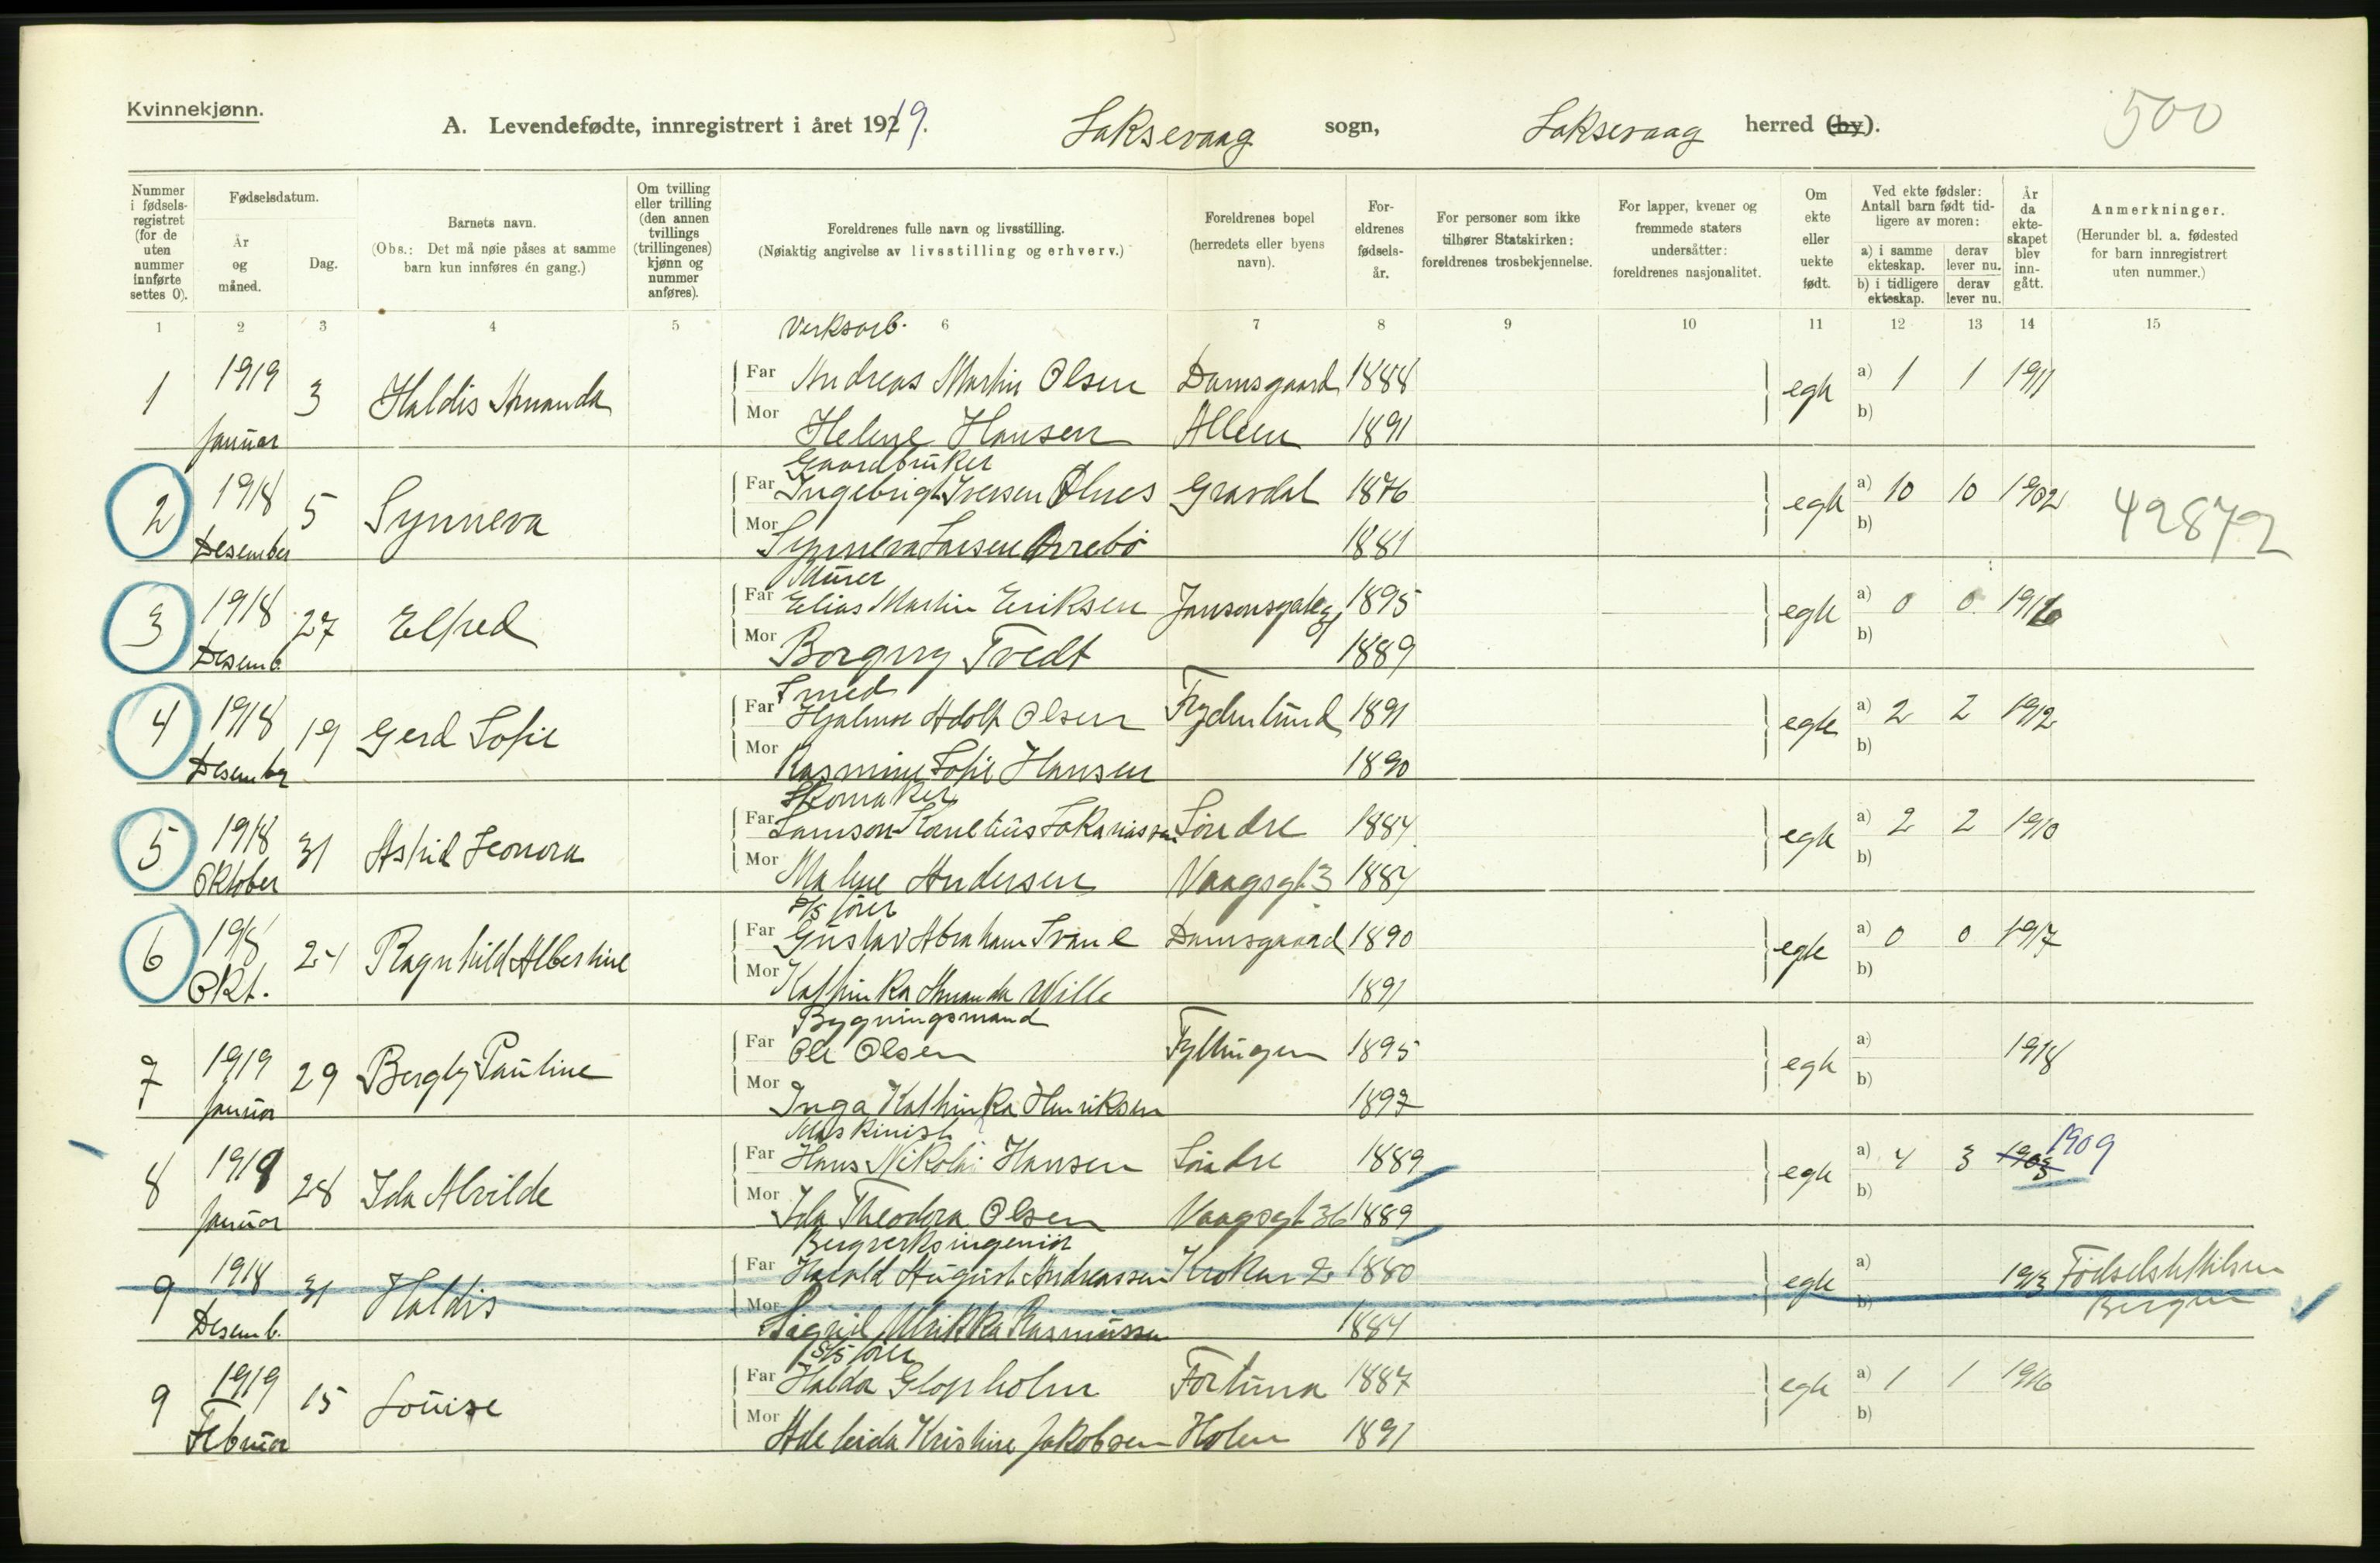 Kvinnekjønn.
A. Levendefødte, innregistrert i året 1919. Laksevaag sogn, Laksevaag herred (by).
500
Nummer i fødselsregistret (for de uten nummer innførte settes 0).
Fødselsdatum.
År og måned.
Dag.
Barnets navn.
(Obs.: Det må nøie påses at samme barn kun innføres én gang.)
Om tvilling eller trilling (den annen tvillings (trillingenes) kjønn og nummer anføres).
Foreldrenes fulle navn og livsstilling.
(Nøiaktig angivelse av livsstilling og erhverv.)
Foreldrenes bopel (herredets eller byens navn).
Foreldrenes fødselsår.
For personer som ikke tilhører Statskirken: foreldrenes trosbekjennelse.
For lapper, kvener og fremmede staters undersåtter: foreldrenes nasjonalitet.
Om ekte eller uekte født.
Ved ekte fødsler: Antall barn født tidligere av moren:
a) i samme ekteskap. derav lever nu.
b) i tidligere ekteskap. derav lever nu.
År da ekteskapet blev inngått.
Anmerkninger.
(Herunder bl. a. fødested for barn innregistrert uten nummer.)
1 2 3 4 5 6 7 8 9 10 11 12 13 14 15
Verksarb.
1 1919 3 Haldis Amanda Far Andreas Martin Olsen Damsgaard 1888 egte a) 1 1 1911
Januar Mor Helene Hansen Alleen 1891 b)
Gaardbruker
2 1918 5 Synneva Far Ingebrigt Iversen Ølnes Gravdal 1876 egte a) 10 10 1902 42872
Desember Mor Synneva Larsen Orrebø 1881 b)
Murer
3 1918 27 Elfred Far Elias Martin Eriksen Jansonsgate 31 1895 egte a) 0 0 1916
Desemb. Mor Borgny Tvedt 1889 b)
Smed
4 1918 19 Gerd Sofie Far Hjalmar Adolf Olsen Frydenlund 1891 egte a) 2 2 1912
Desember Mor Rasmine Sofie Hansen 1890 b)
Skomaker
5 1918 31 Astrid Leonora Far Samson Kornelius Sakariassen Søndre 1884 egte a) 2 2 1910
Oktober Mor Malene Andersen Vaagsgt 3 1884 b)
D/S fører
6 1918 24 Ragnhild Albertine Far Gustav Abraham Svane Damsgaard 1890 egte a) 0 0 1917
Okt. Mor Kathinka Amanda Wille 1891 b)
Bygningsmand
7 1919 29 Bergly Pauline Far Ole Olsen Fyllingen 1895 egte a) 1918
Januar Mor Inga Kathinka Henriksen 1897 b)
Maskinist
8 1919 28 Ida Alvilde Far Hans Nikolai Hansen Søndre 1889 egte a) 4 3 1903 1909
Januar Mor Ida Theodora Olsen Vaagsgt 36 1889 b)
Bergverksingeniør
9 1918 31 Haldis Far Harald August Andreassen Kroken 2 1880 egte a) 1913 Fødselsstiftelsen
Desemb. Mor Sigrid Ulrikka Rasmussen 1884 b) Bergen
D/S fører
9 1919 15 Louise Far Haldor Glopholm Fortuna 1887 egte a) 1 1 1916
Februar Mor Adeleida Kristine Jakobsen Holen 1891 b)